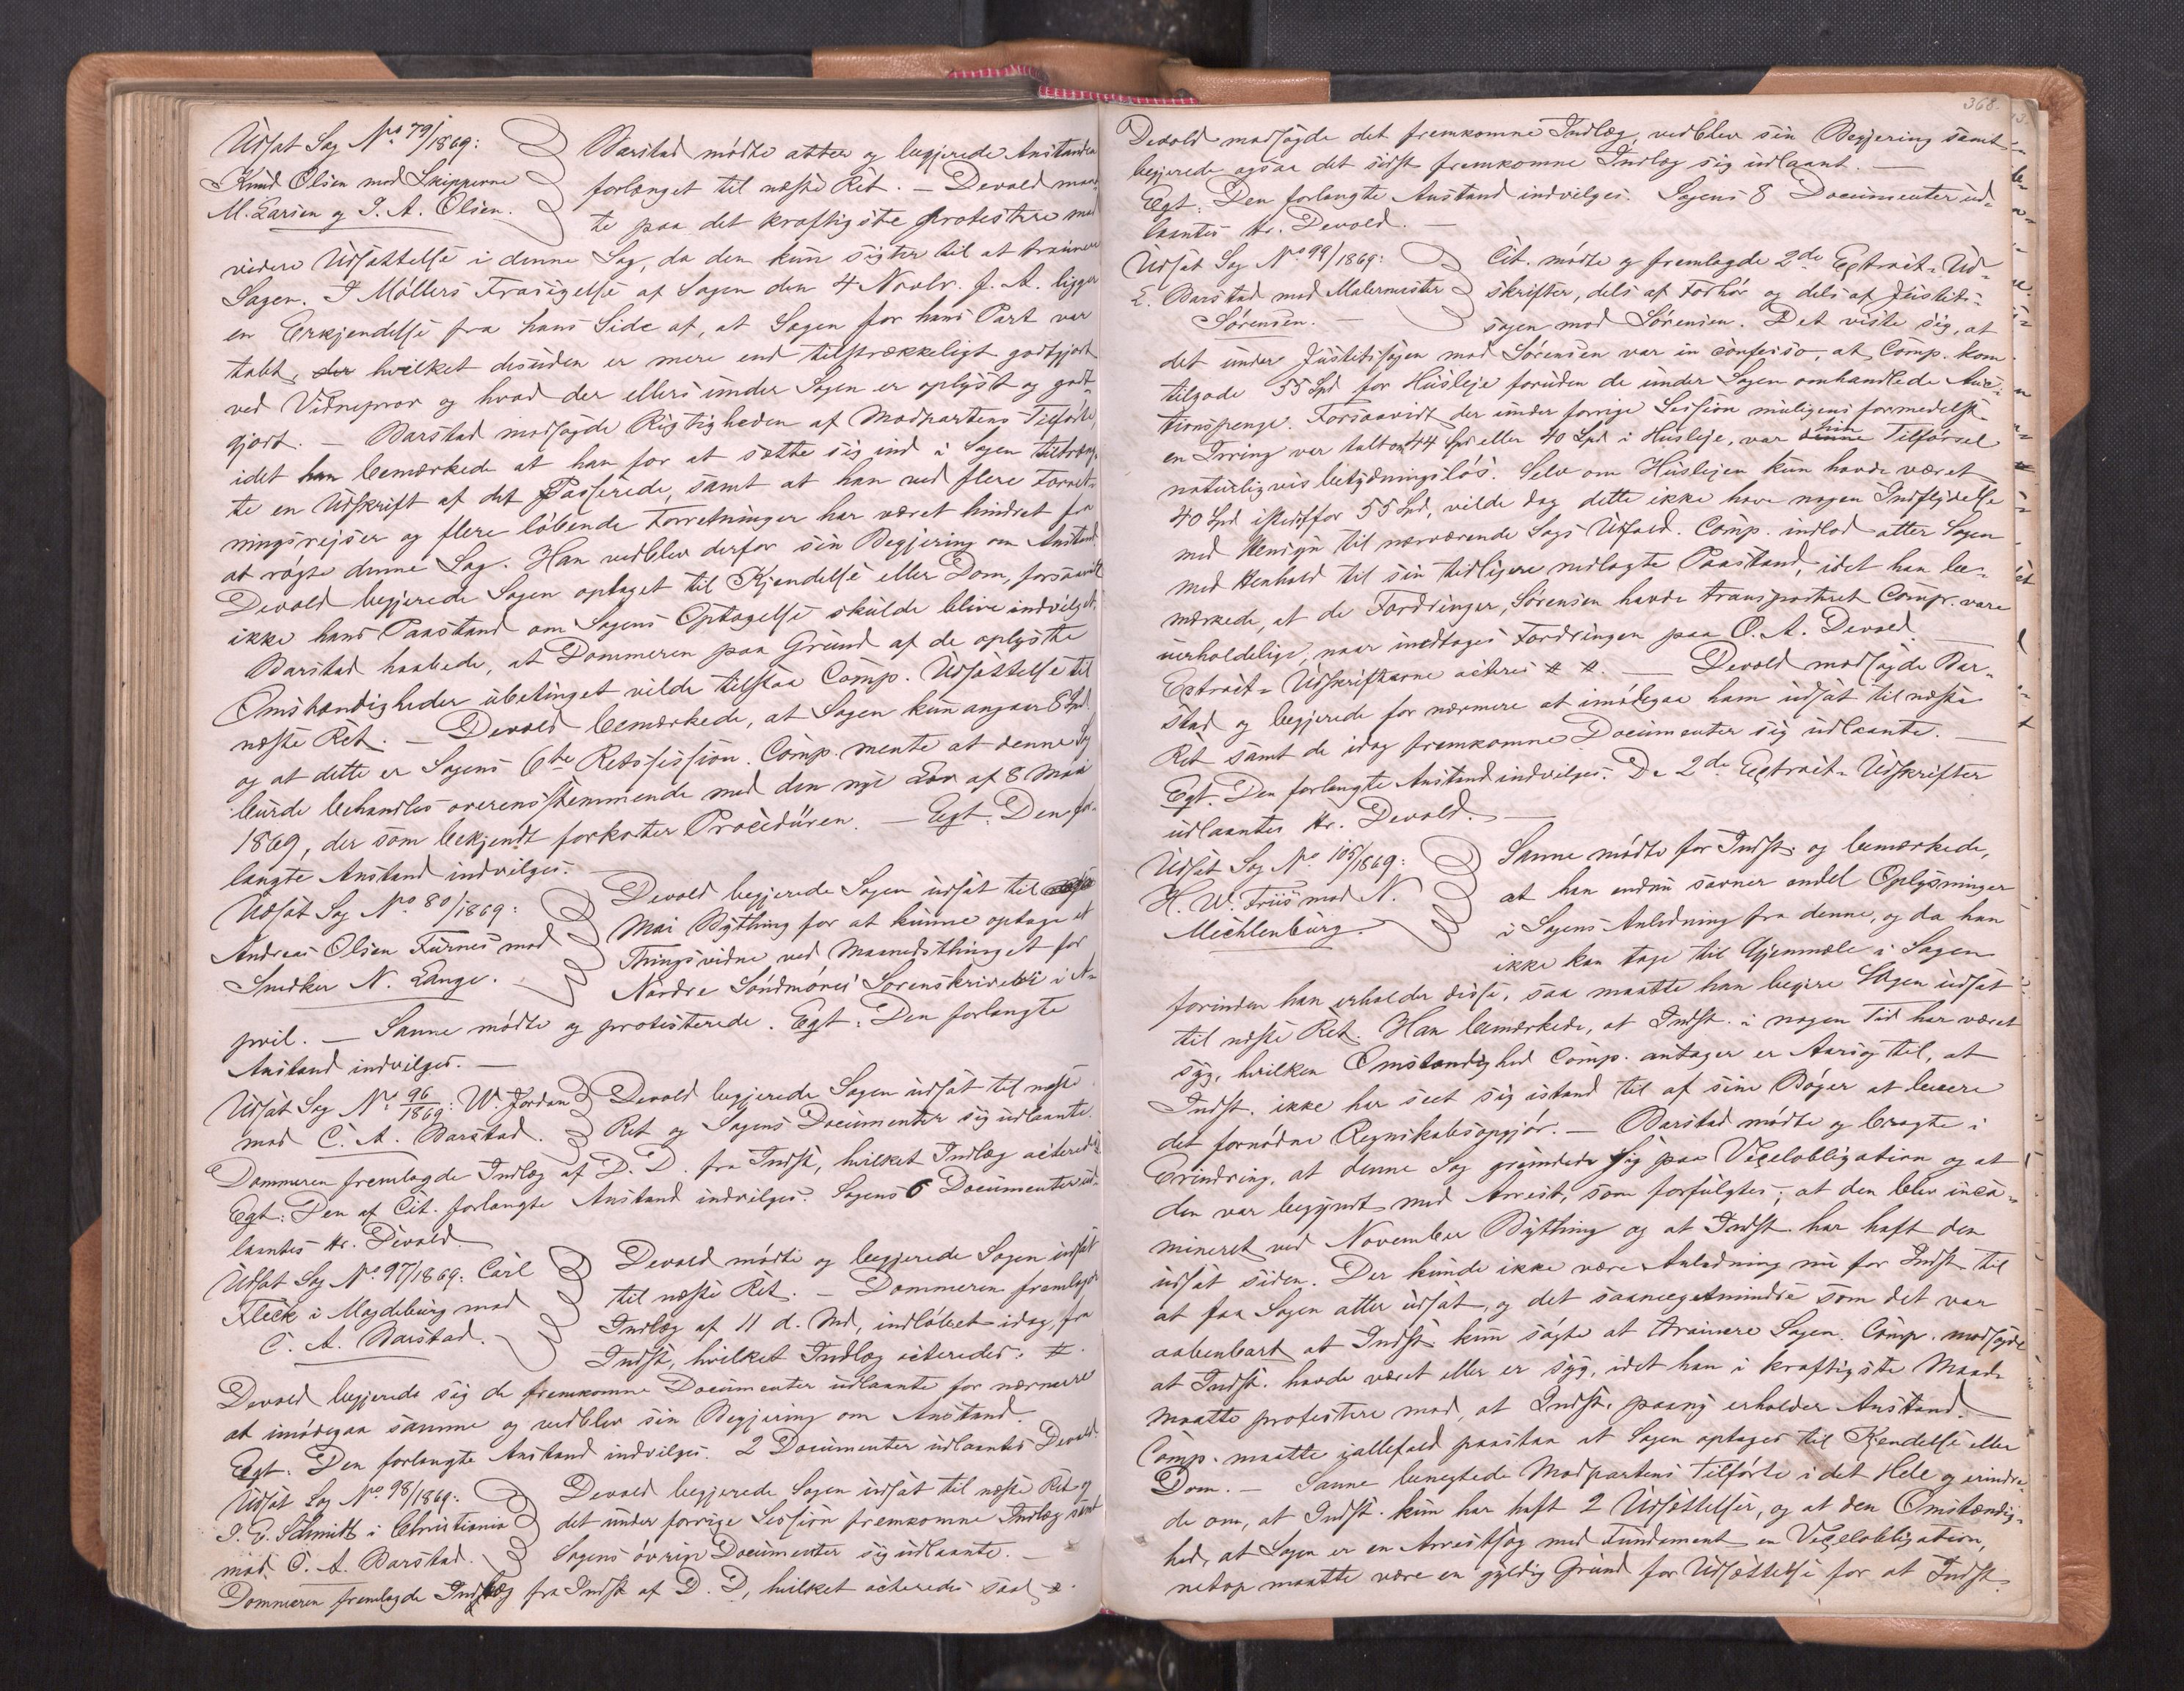 Udsat Sag No 79/1869:
Knud Olsen mod Skipperne
M. Larsen og J. A. Olsen.
Barstad mödte atter og begjerede Anstanden
forlænget til næste Ret. — Devold maat-
te paa det kraftigste protestere mod
videre Udsættelse i denne Sag, da den kun sigter til at trainere
Sagen. I Möllers Frasigelse af Sagen den 4 Novbr. f. A. ligger
en Erkjendelse fra hans Side af, at Sagen for hans Part var
tabt, hvilket desuden er mere end tilstrækkeligt godtgjort
ved Vidneprov og hvad der ellers under Sagen er oplyst og godt-
gjort. — Barstad modsagde Rigtigheden af Modpartens Tilförte,
idet han bemærkede at han for at sætte sig ind i Sagen tiltræng-
te en Udskrift af det Passerede, samt at han ved flere Forret-
ningsrejser og flere löbende Forretninger har været hindret fra
at rögte denne Sag. Han vedblev derfor sin Begjering om Anstand.
Devold begjerede Sagen optaget til Kjendelse eller Dom, forsaavidt
ikke hans Paastand om Sagens Optagelse skulde blive indvilget.
Barstad haabede, at Dommeren paa Grund af de oplyste
Omstændigheder ubetinget vilde tilstaa Comp. Udsættelse til
næste Ret. — Devold bemærkede, at Sagen kun angaar 8 Spd.
og at dette er Sagens 6te Retssession. Comp. mente at denne Sag
burde behandles overensstemmende med den nye Lov af 8 Mai
1869, der som bekjendt forkorter Proceduren. — Egt: Den for-
langte Anstand indvilges.
Udsat Sag No 80/1869:
Andreas Olsen Furnes mod
Snedker N. Lange.
Devold begjerede Sagen udsat til
Mai Bything for at kunne optage et
Thingsvidne ved Maanedsthinget for
Nordre Söndmöres Sorenskriveri i A-
pril. — Sanne mödte og protesterede. Egt: Den forlangte
Anstand indvilges. —
Udsat Sag No 96/1869: W. Jordan
mod C. A. Barstad.
Devold begjerede Sagen udsat til næste
Ret og Sagens Documenter sig udlaante.
Dommeren fremlagde Indlæg af D. D. fra Indst, hvilket Indlæg acteredes
Egt: Den af Cit. forlangte Anstand indvilges. Sagens 6 Documenter ud-
laantes Hr. Devold.
Udsat Sag No 97/1869: Carl
Fleck i Magdeburg mod
C. A. Barstad.
Devold mödte og begjerede Sagen udsat
til næste Ret. — Dommeren fremlagde
Indlæg af 11 d. Md, indlöbet idag, fra
Indst, hvilket Indlæg acteredes: #.
Devold begjerede sig de fremkomne Documenter udlaante for nærmere
at imödegaa samme og vedblev sin Begjering om Anstand.
Egt: Den forlangte Anstand indvilges. 2 Documenter udlaantes Devold.
Udsat Sag No 98/1869:
J. E. Schmidt i Christiania
mod C. A. Barstad.
Devold begjerede Sagen udsat til næste Ret og
det under forrige Session fremkomne Indlæg samt
Sagens övrige Documenter sig udlaante. —
Dommeren fremlagde Indlæg fra Indst af D. D, hvilket acteredes saal. #.
368.
Devold modsagde det fremkomne Indlæg, vedblev sin Begjering samt
begjerede ogsaa det sidst fremkomne Indlæg sig udlaant. —
Egt: Den forlangte Anstand indvilges. Sagens 8 Documenter ud-
laantes Hr. Devold. —
Udsat Sag No 99/1869:
E. Barstad mod Malermester
Sörensen. —
Cit. mödte og fremlagde 2de Extract-Ud-
skrifter, dels af Forhör og dels af Justits-
sagen mod Sörensen. Det viste sig, at
det under Justitssagen mod Sörensen var in confesso, at Comp. kom
tilgode 55 Spd for Husleje foruden de under Sagen omhandlede Auc-
tionspenge. Forsaavidt der under forrige Session muligens formedelst
en Irring var talt om 44 Spd eller 40 Spd i Husleje, var sin Tilförsel
naturligvis betydningslös. Selv om Huslejen kun havde været
40 Spd istedetfor 55 Spd, vilde dog dette ikke have nogen Indflydelse
med Hensyn til nærværende Sags Udfald. Comp. indlod atter Sagen
med Henhold til sin tidligere nedlagte Paastand, idet han be-
mærkede, at de Fordringer, Sörensen havde transporteret Comp. vare
uerholdelige, naar undtages Fordringen paa O. A. Devold.
Extract-Udskrifterne acteres # #. — Devold modsagde Bar-
stad og begjerede for nærmere at imödegaa ham udsat til næste
Ret samt de idag fremkomne Documenter sig udlaante. —
Egt. Den forlangte Anstand indvilges. De 2de Extract-Udskrifter
udlaantes Hr. Devold. —
Udsat Sag No 105/1869:
H. W. Friis mod N.
Mechlenburg.
Sanne mödte for Indst. og bemærkede,
at han endnu savner endel Oplysninger
i Sagens Anledning fra denne, og da han
ikke kan tage til Gjenmæle i Sagen
forinden han erholder disse, saa maatte han begjere Sagen udsat
til næste Ret. Han bemærkede, at Indst. i nogen Tid har været
syg, hvilken Omstændighed Comp. antager er Aarsag til, at
Indst. ikke har seet sig istand til af sine Böger at levere
det fornödne Regnskabsopgjör. — Barstad mödte og bragte i
Erindring, at denne Sag grundede sig paa Vexelobligation og at
den var begyndt med Arrest, som forfulgtes; at den blev inca-
mineret ved November Bything og at Indst. har haft den
udsat siden. Der kunde ikke være Anledning nu for Indst. til
at faa Sagen atter udsat, og det saameget mindre som det var
aabenbart at Indst. kun sögte at trainere Sagen. Comp. modsagde
at Indst. havde været eller er syg, idet han i kraftigste Maade
maatte protestere mod, at Indst. paany erholder Anstand.
Comp. maatte iallefald paastaa at Sagen optages til Kjendelse eller
Dom. — Sanne benegtede Modpartens Tilförte i det Hele og erindre-
de om, at Indst. kun har haft 2 Udsættelser, og at den Omstændig-
hed, at Sagen er en Arrestsag med Fundament en Vexelobligation,
netop maatte være en gyldig Grund for Udsættelse for at Indst.